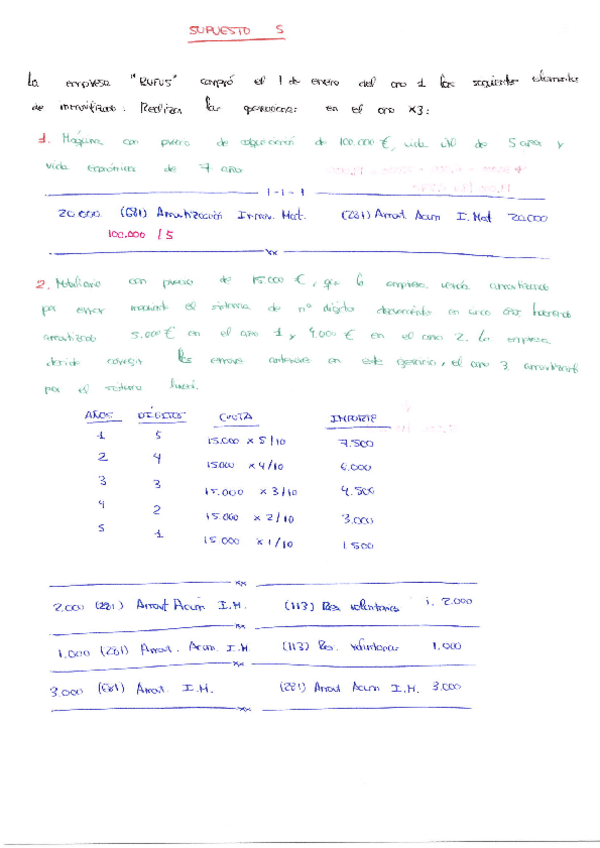 SUPUESTO 5
La empresa "RUFUS" compró el 1 de enero del año 1 los siguientes elementos
de inmovilizado. Realiza las operaciones en el año X3:
1. Máquina con precio de adquisición de 100.000 €, vida útil de 5 años y
vida económica de 7 años
1-1-1
20.000 (681) Amortización Inmov. Mat. (281) Amort Acum I. Mat 20.000
100.000 / 5
xx
2. Mobiliario con precio de 15.000 €, que la empresa venía amortizando
por error mediante el sistema de nº dígitos decreciente en cinco años habiendo
amortizado 5.000 € en el año 1 y 4.000 € en el año 2. La empresa
decide corregir los errores anteriores en este ejercicio, el año 3, amortizando
por el sistema lineal.
AÑOS DÍGITOS CUOTA IMPORTE
1 5 15.000 x 5/10 7.500
2 4 15000 x 4/10 6.000
3 3 15.000 x 3/10 4.500
4 2 15.000 x 2/10 3.000
5 1 15.000 x 1/10 1.500
xx
2.000 (281) Amort Acum I.M. (113) Res voluntarias 2.000
xx
1.000 (281) Amort. Acum. I.M (113) Res. voluntarias 1.000
xx
3.000 (681) Amort. I.M. (281) Amort Acum I.M. 3.000
xx